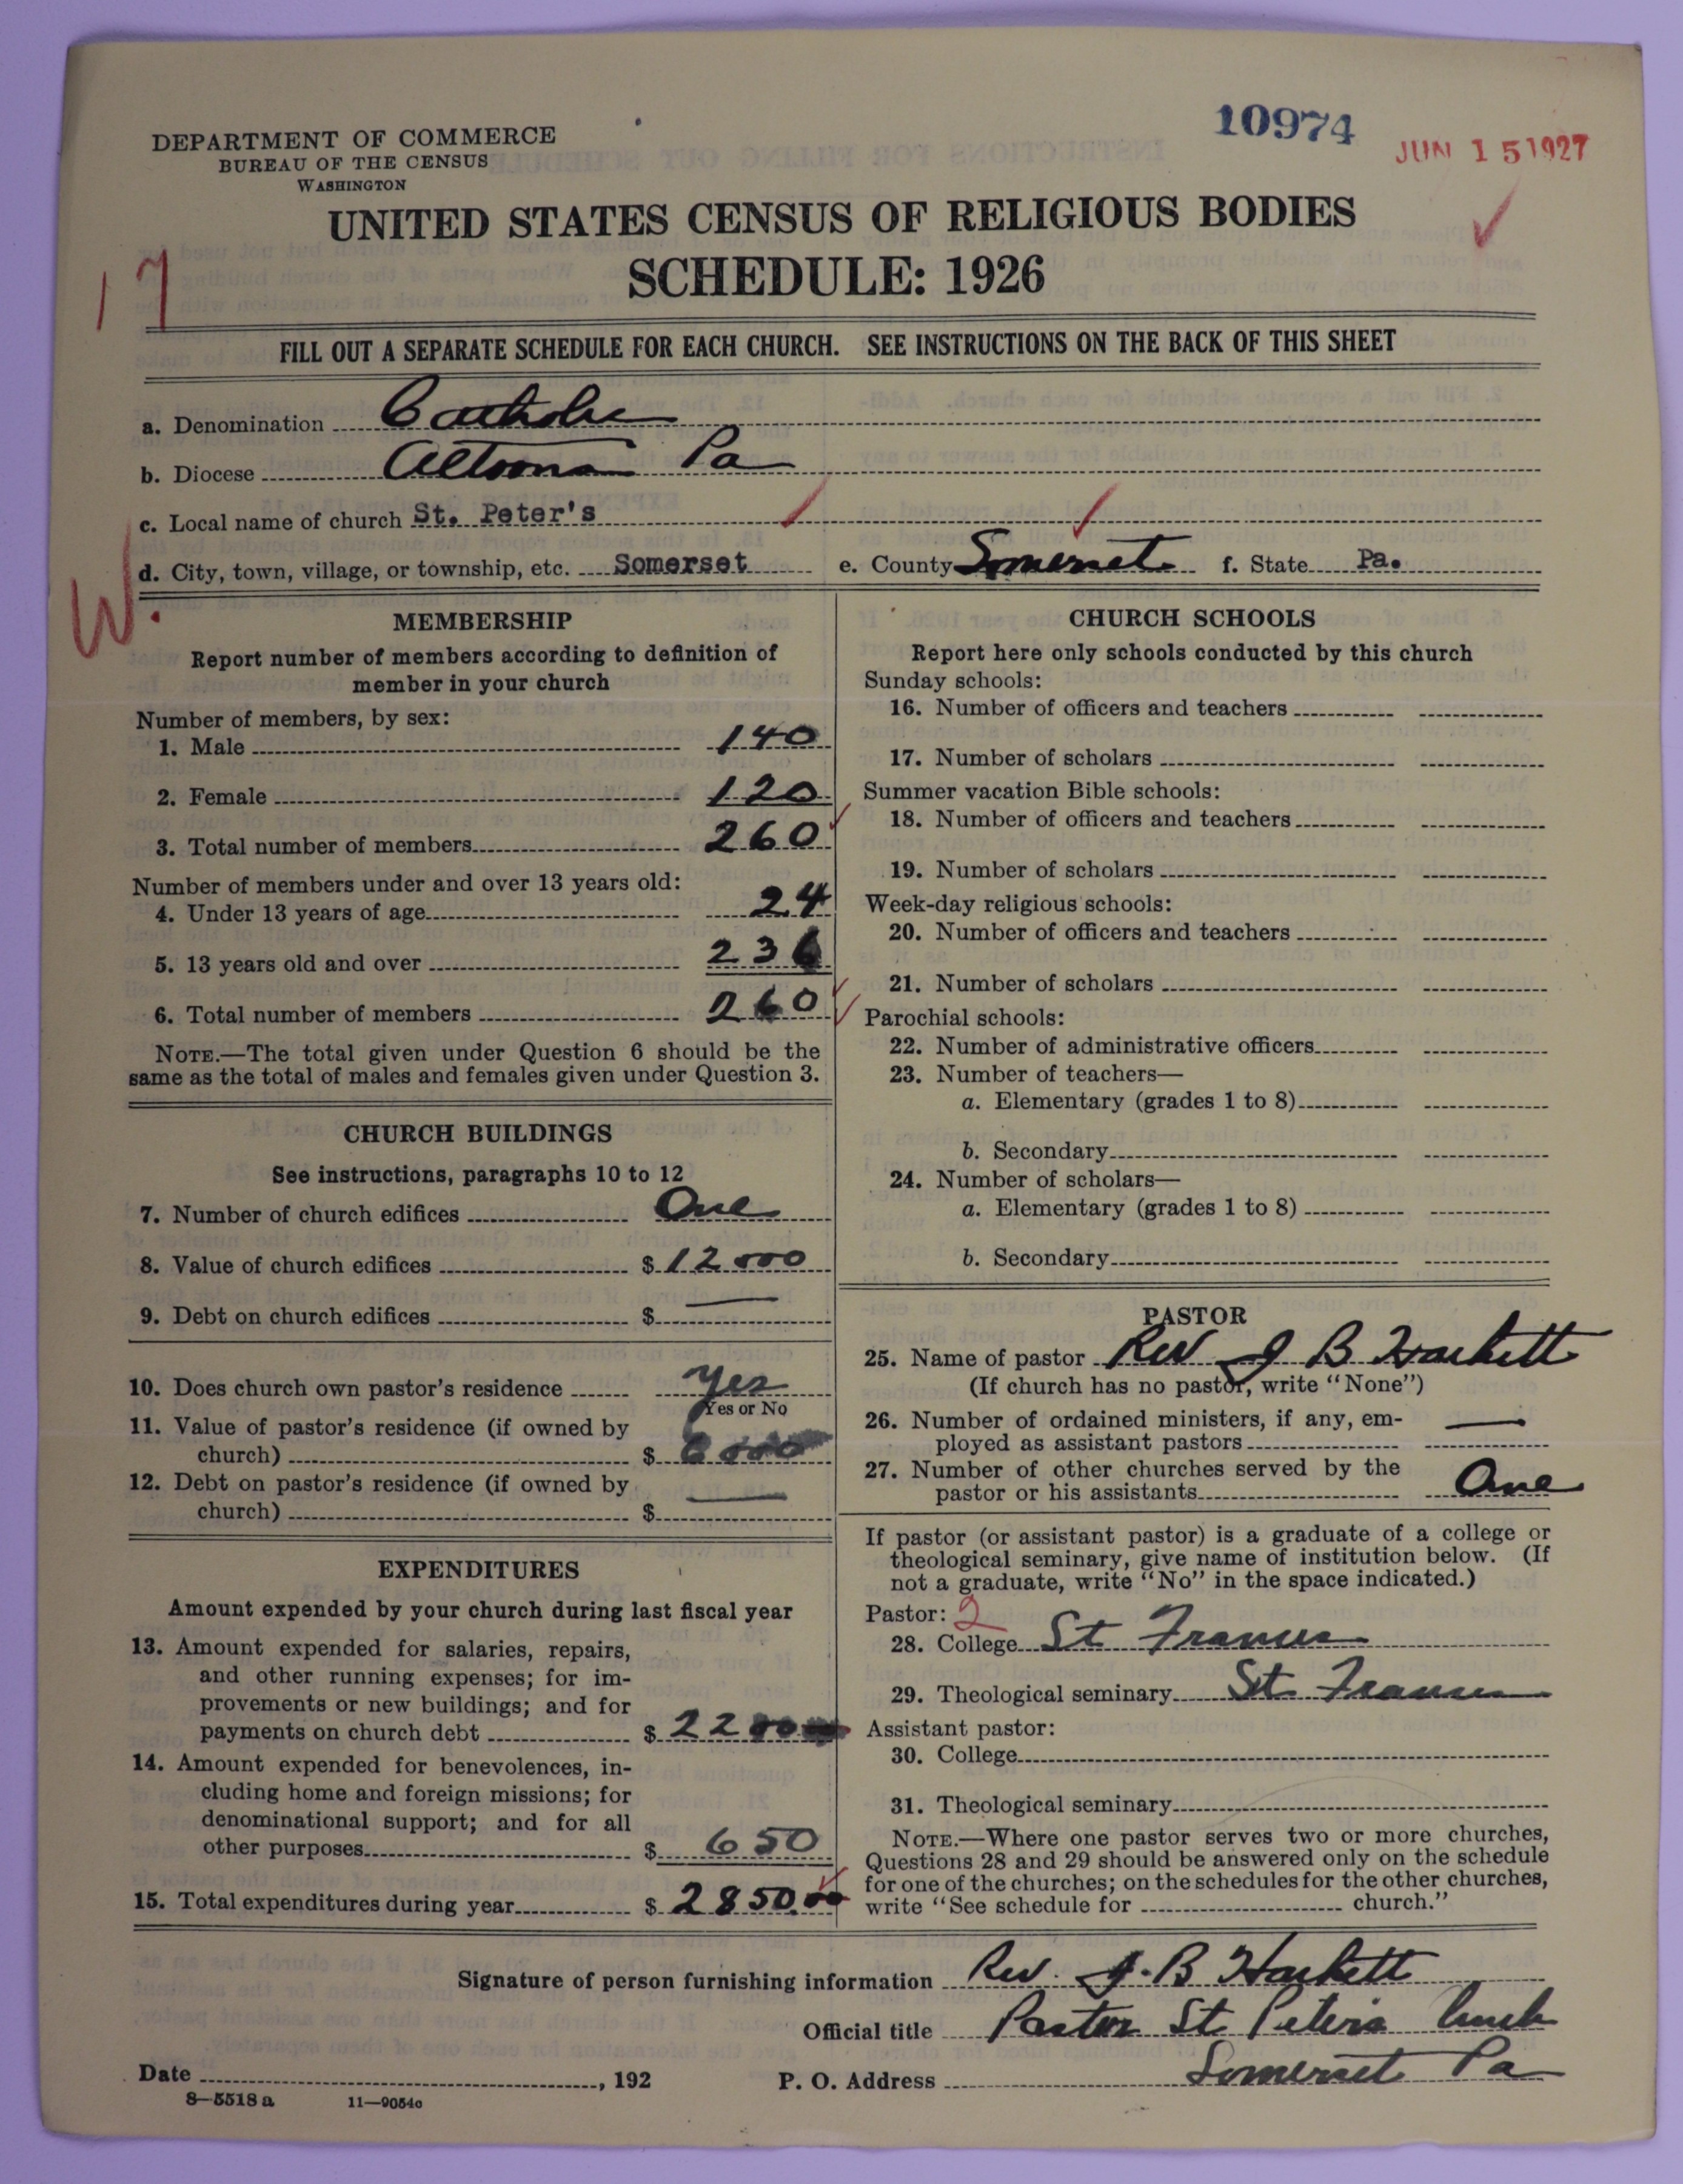 10974
JUN 15 1927
DEPARTMENT OF COMMERCE
BUREAU OF THE CENSUS
WASHINGTON
UNITED STATES CENSUS OF RELIGIOUS BODIES
SCHEDULE: 1926
17
FILL OUT A SEPARATE SCHEDULE FOR EACH CHURCH. SEE INSTRUCTIONS ON THE BACK OF THIS SHEET
a. Denomination Catholic
b. Diocese Altoona Pa
c. Local name of church St. Peter's
d. City, town, village, or township, etc. Somerset e. County Somerset f. State Pa.
W.
MEMBERSHIP
Report number of members according to definition of
member in your church
Number of members, by sex:
1. Male 140
2. Female 120
3. Total number of members 260
Number of members under and over 13 years old:
4. Under 13 years of age 24
5. 13 years old and over 236
6. Total number of members 260
NOTE.—The total given under Question 6 should be the
same as the total of males and females given under Question 3.
CHURCH BUILDINGS
See instructions, paragraphs 10 to 12
7. Number of church edifices One
8. Value of church edifices $ 12000
9. Debt on church edifices $ —
10. Does church own pastor's residence Yes
Yes or No
11. Value of pastor's residence (if owned by
church) $ 6000
12. Debt on pastor's residence (if owned by
church) $ —
EXPENDITURES
Amount expended by your church during last fiscal year
13. Amount expended for salaries, repairs,
and other running expenses; for im-
provements or new buildings; and for
payments on church debt $ 2200
14. Amount expended for benevolences, in-
cluding home and foreign missions; for
denominational support; and for all
other purposes $ 650
15. Total expenditures during year $ 2850.00
CHURCH SCHOOLS
Report here only schools conducted by this church
Sunday schools:
16. Number of officers and teachers
17. Number of scholars
Summer vacation Bible schools:
18. Number of officers and teachers
19. Number of scholars
Week-day religious schools:
20. Number of officers and teachers
21. Number of scholars
Parochial schools:
22. Number of administrative officers
23. Number of teachers—
a. Elementary (grades 1 to 8)
b. Secondary
24. Number of scholars—
a. Elementary (grades 1 to 8)
b. Secondary
PASTOR
25. Name of pastor Rev J B Hackett
(If church has no pastor, write "None")
26. Number of ordained ministers, if any, em-
ployed as assistant pastors —
27. Number of other churches served by the
pastor or his assistants One
If pastor (or assistant pastor) is a graduate of a college or
theological seminary, give name of institution below. (If
not a graduate, write "No" in the space indicated.)
Pastor: 2
28. College St Francis
29. Theological seminary St. Francis
Assistant pastor:
30. College
31. Theological seminary
NOTE.—Where one pastor serves two or more churches,
Questions 28 and 29 should be answered only on the schedule
for one of the churches; on the schedules for the other churches,
write "See schedule for church."
Signature of person furnishing information Rev. J. B Hackett
Official title Pastor St Peters Church
Date , 192 P. O. Address Somerset Pa
8—5518 a 11—9054c